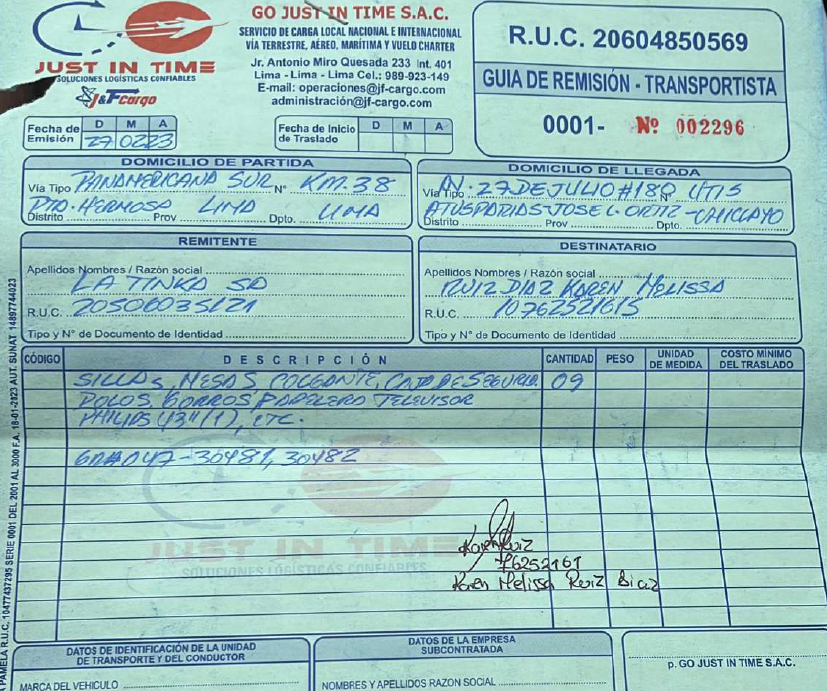 JUST IN TIME
SOLUCIONES LOGÍSTICAS CONFIABLES
J&F Cargo
GO JUST IN TIME S.A.C.
SERVICIO DE CARGA LOCAL NACIONAL E INTERNACIONAL
VÍA TERRESTRE, AÉREO, MARÍTIMA Y VUELO CHARTER
Jr. Antonio Miro Quesada 233 Int. 401
Lima - Lima - Lima Cel.: 989-923-149
E-mail: operaciones@jf-cargo.com
administración@jf-cargo.com
R.U.C. 20604850569
GUIA DE REMISIÓN - TRANSPORTISTA
0001- Nº 002296
Fecha de Emisión D M A
27 02 23
Fecha de Inicio de Traslado D M A
DOMICILIO DE PARTIDA
Vía Tipo PANAMERICANA SUR N° KM.38
PTO. HERMOSA LIMA LIMA
Distrito Prov Dpto.
DOMICILIO DE LLEGADA
Vía Tipo AV. 27 DE JULIO #180 N°
ATUSPARIAS-JOSE L. ORTIZ-CHICLAYO
Distrito Prov Dpto.
REMITENTE
Apellidos Nombres / Razón social
LA TINKA SA
R.U.C.
Tipo y N° de Documento de Identidad
DESTINATARIO
Apellidos Nombres / Razón social
RUIZ DIAZ KAREN MELISSA
R.U.C. 10762521615
Tipo y N° de Documento de Identidad
CÓDIGO DESCRIPCIÓN CANTIDAD PESO UNIDAD DE MEDIDA COSTO MÍNIMO DEL TRASLADO
SILLAS, MESAS COLGANTE, CAJA DE SEGURIDA 09
POLOS GORROS PAPELERO TELEVISOR
PHILIPS 43"(1), ETC.
047-30481, 30482
JUST IN TIME
SOLUCIONES LOGÍSTICAS CONFIABLES
Karen Ruiz
76252161
Karen Melissa Ruiz Diaz
DATOS DE IDENTIFICACIÓN DE LA UNIDAD
DE TRANSPORTE Y DEL CONDUCTOR
MARCA DEL VEHICULO
DATOS DE LA EMPRESA
SUBCONTRATADA
NOMBRES Y APELLIDOS RAZON SOCIAL
p. GO JUST IN TIME S.A.C.
PAMELA R.U.C. 10477437295 SERIE 0001 DEL 2001 AL 3000 F.A. 18-01-2023 AUT. SUNAT 14897744023